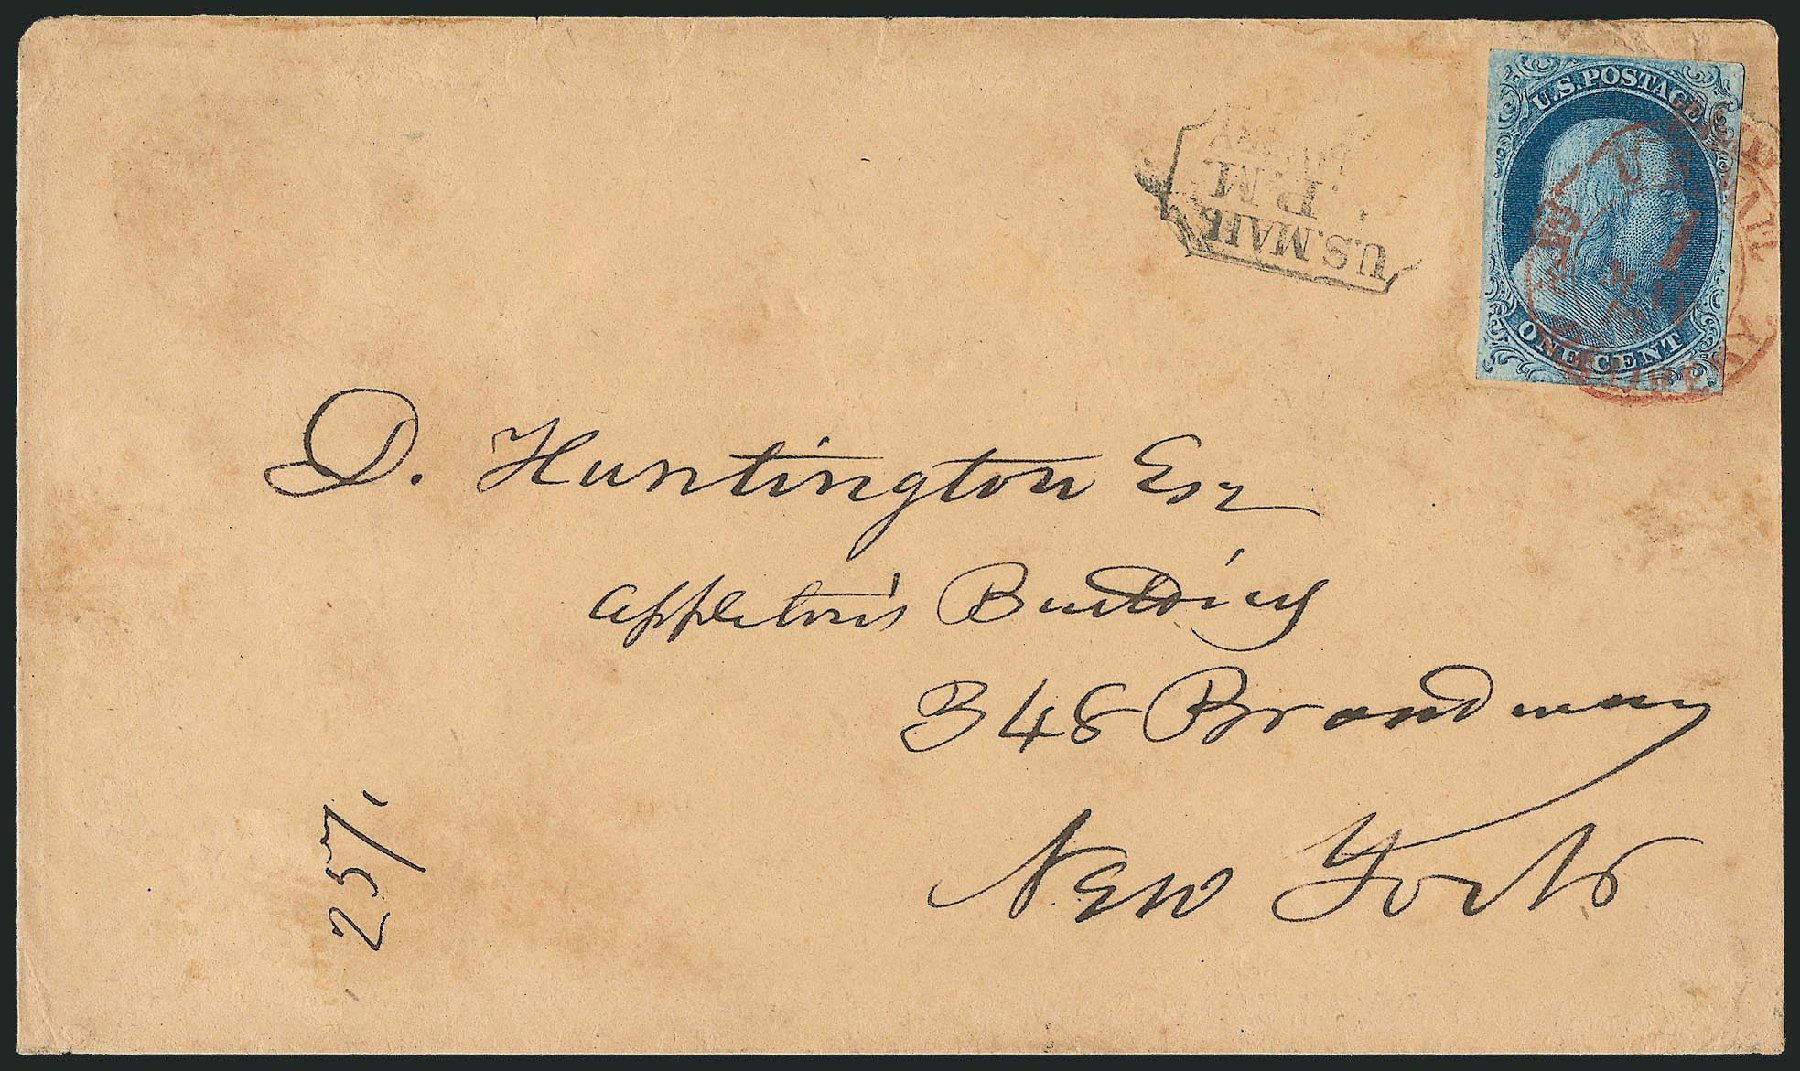 U.S. POSTAGE
ONE CENT
U.S. MAIL
P.M.
DELIVERY
D. Huntington Esq
Appleton's Building
348 Broadway
New York
257.